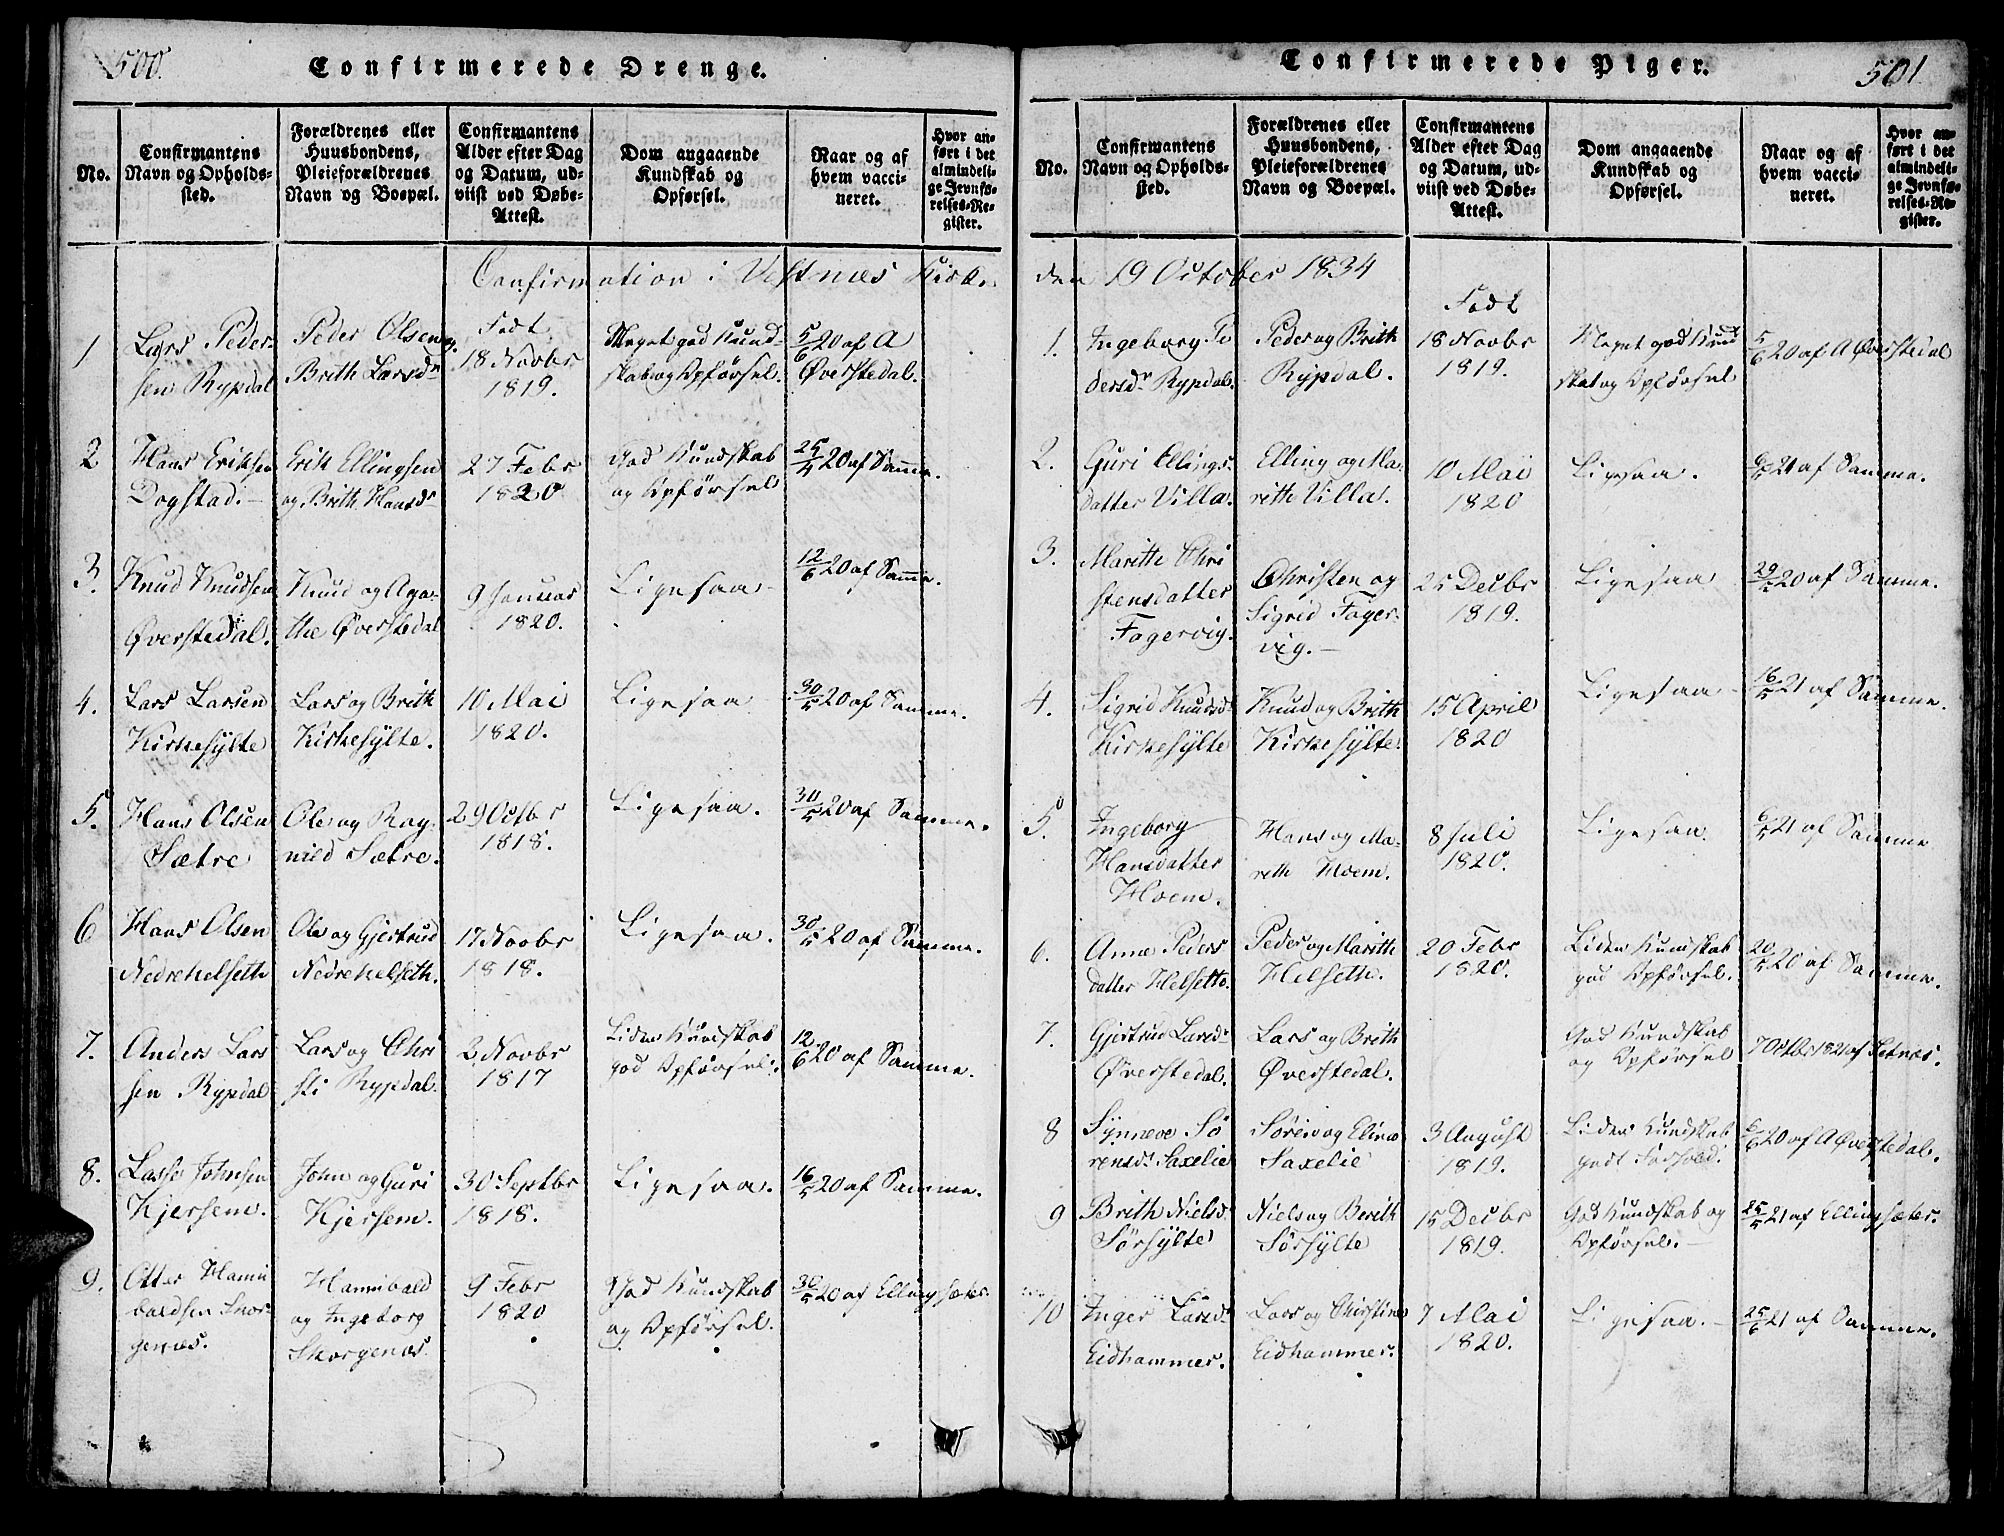 500.
Confirmerede Drenge.
No.
Confirmantens
Navn og Opholds-
sted.
Forældrenes eller
Huusbondens,
Pleieforældrenes
Navn og Boepæl.
Confirmantens
Alder efter Dag
og Datum, ud-
viist ved Døbe-
Attest.
Dom angaaende
Kundskab og
Opførsel.
Naar og af
hvem vacci-
neret.
Hvor an-
ført i det
almindeli-
ge Jevnfø-
relses-Re-
gister.
Confirmation i Vestnæs Kirke
1
Lars Peder-
sen Rypdal
Peder Olsen
Brith Larsdr
Født
18 Novbr
1819.
Meget god Kund-
skab og Opførsel.
5/6 20 af A
Øverstedal.
2
Hans Eriksen
Dogstad.-
Erik Ellingsen
og Brith Hansdr
27 Febr
1820
God Kundskab
og Opførsel
25/4 20 af Samme.
3.
Knud Knudsen
Øverstedal.
Knud og Aga-
the Øverstedal
9 Januar
1820.
Ligesaa-
12/6 20 af Samme.
4.
Lars Larsen
Kirkesylte
Lars og Brith
Kirkesylte.
10 Mai
1820.
Ligesaa
30/5 20 af Samme.
5.
Hans Olsen
Sætre
Ole og Rag-
nild Sætre.
29 Octbr
1818.
Ligesaa.
30/5 20 af Samme.
6
Hans Olsen
Nedrehelseth
Ole og Gjertrud
Nedrehelseth.
17 Novbr
1818.
Ligesaa.
30/5 20 af Samme.
7.
Anders Lars
sen Rypdal
Lars og Chri
sti Rypdal.
2 Novbr
1817
Liden Kundskab
god Opførsel.
12/6 20 af Samme.
8.
Lasse Johnsen
Kjersem.
John og Guri
Kjersem.
30 Septbr
1818.
Ligesaa.
16/5 20 af Samme.
9.
Otter Hanni
baldsen Skor
genæs.
Hannibald
og Ingeborg
Skorgenæs
9 Febr
1820
God Kundskab
og Opførsel.
30/5 20 af Ellingsæter.
Confirmerede Piger.
501
No.
Confirmantens
Navn og Opholds-
sted.
Forældrenes eller
Huusbondens,
Pleieforældrenes
Navn og Boepæl.
Confirmantens
Alder efter Dag
og Datum, ud-
viist ved Døbe-
Attest.
Dom angaaende
Kundskab og
Opførsel.
Naar og af
hvem vacci-
neret.
Hvor an-
ført i det
almindeli-
ge Jevnfø-
relses-Re-
gister.
den 19 October 1834
1.
Ingeborg Pe
dersdr Rypdal.
Peder og Brith
Rypdal.
Født
18 Novbr
1819.
Meget god Kund
skab og Opførsel
5/6 20 af A Øverstedal
2.
Guri Ellings-
datter Villa.
Elling og Ma-
rith Villa.
10 Mai
1820
Ligesaa.
6/5 21 af Samme.
3.
Marith Chri
stensdatter
Fagervig.
Christen og
Sigrid Fager-
vig.-
25 Decbr
1819.
Ligesaa
29/5 20 af Samme.
4.
Sigrid Knudsdr
Kirkesylte
Knud og Brith
Kirkesylte.
15 April
1820
Ligesaa-
16/5 21 af Samme.
5.
Ingeborg
Hansdatter
Hoem.
Hans og Ma-
reth Hoem.
8 Juli
1820.
Ligesaa.
6/5 21 af Samme
6.
Anne Peders
datter Helseth.
Peder og Marith
Helseth.
20 Febr
1820.
Liden Kundskab
god Opførsel.
20/5 20 af Samme.
7.
Gjertrud Larsdr
Øverstedal.
Lars og Brith
Øverstedal.
God Kundskab
og Opførsel
7 Octbr 1821 af Setnæs.
8
Synneve Sø
rensdr Saxelie
Søren og Eline
Saxelie
3 August
1819.
Liden Kundskab
godt Forhold.
6/6 20 af A Øverstedal.
9
Brith Nielsd.
Sørsylte
Niels og Berith
Sørsylte
15 Decbr
1819.
God Kundskab og
Opførsel.-
25/5 21 af Ellingsæter.
10
Inger Larsdr
Eidhammer.
Lars og Christine
Eidhammer.
7 Mai
1820.
Ligesaa.-
25/6 21 af Samme.